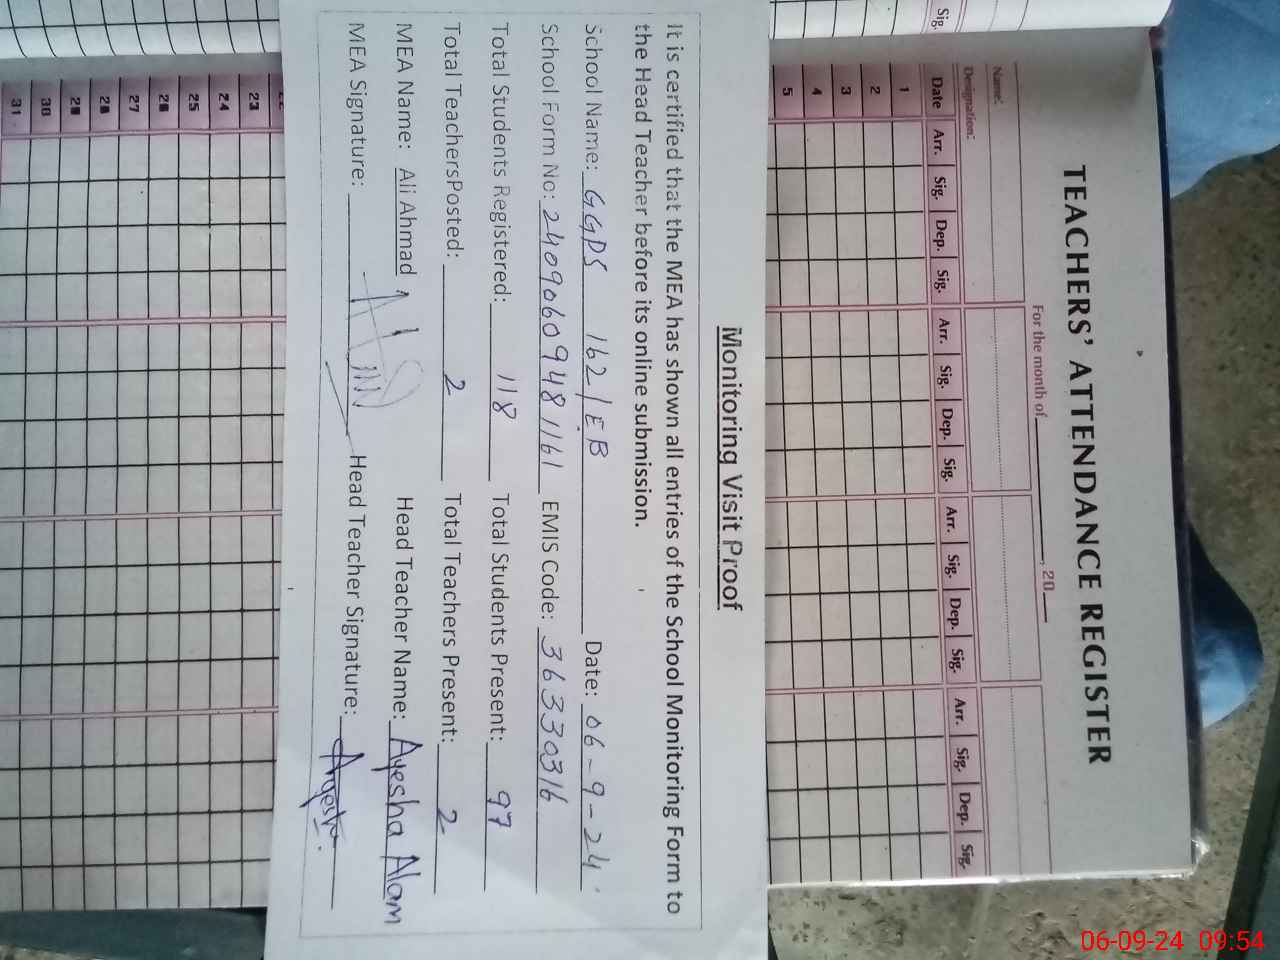 TEACHERS' ATTENDANCE REGISTER
For the month of , 20
Name:
Designation:
Date Arr. Sig. Dep. Sig. Arr. Sig. Dep. Sig. Arr. Sig. Dep. Sig. Arr. Sig. Dep. Sig.
1
2
3
4
5
Monitoring Visit Proof
It is certified that the MEA has shown all entries of the School Monitoring Form to
the Head Teacher before its online submission.
School Name: GGPS 162/EB Date: 06-9-24
School Form No: 24090609481161 EMIS Code: 36330316
Total Students Registered: 118 Total Students Present: 97
Total TeachersPosted: 2 Total Teachers Present: 2
MEA Name: Ali Ahmad Head Teacher Name: Ayesha Alam
MEA Signature: Head Teacher Signature: Ayesha
23
24
25
26
27
28
29
30
31
Sig.
06-09-24 09:54